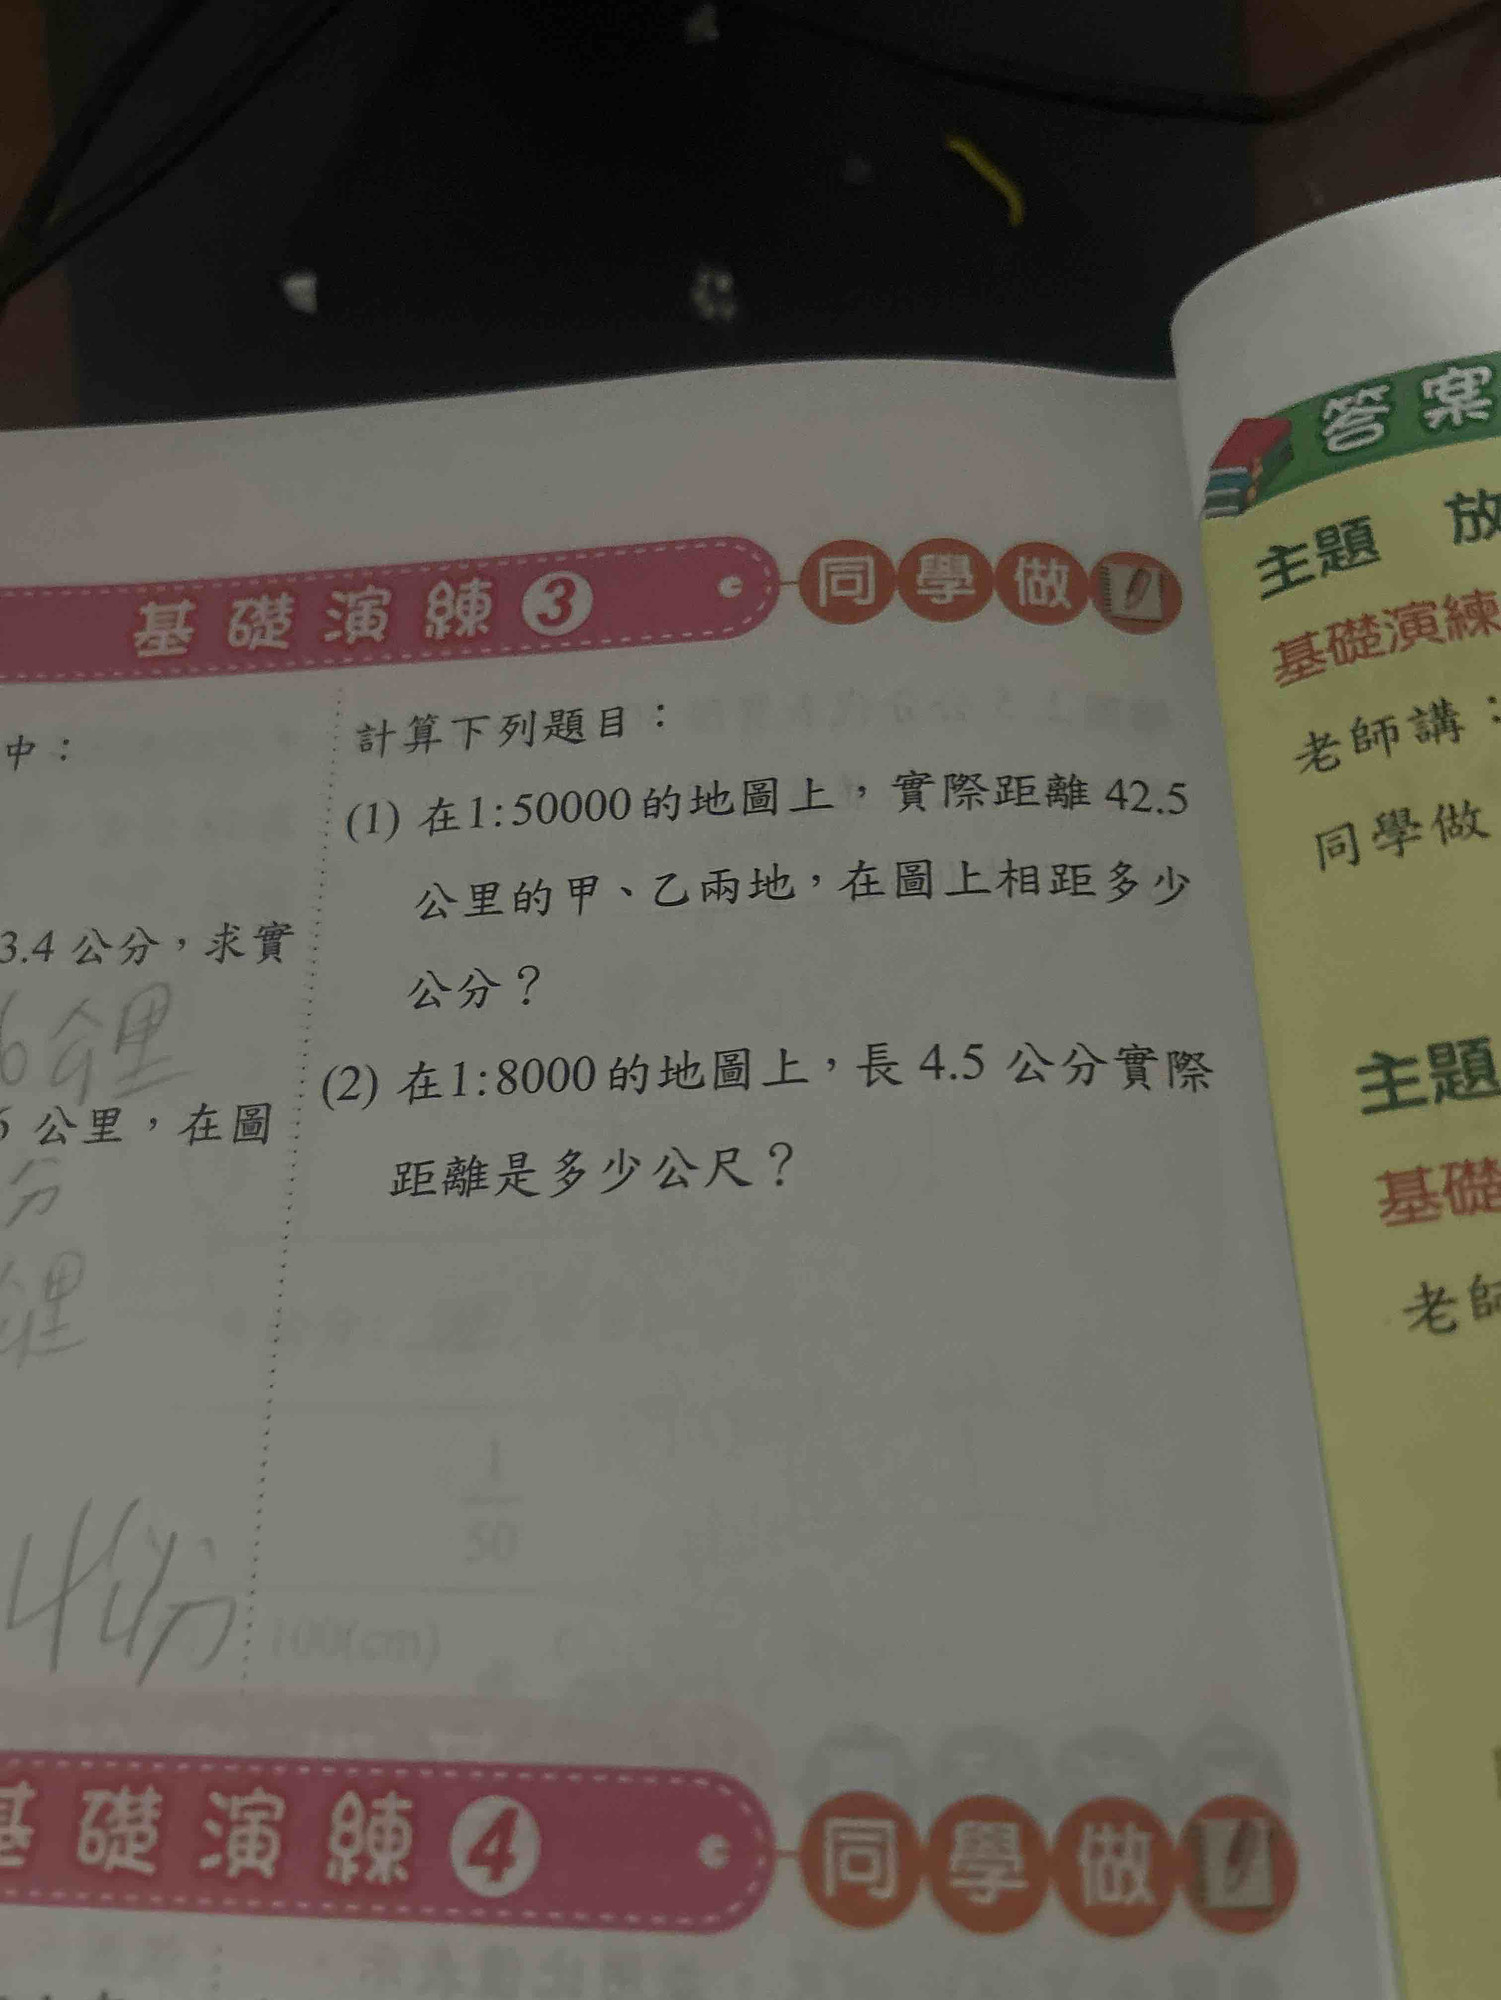 答案
主題 放
基礎演練
老師講：
同學做
主題
基礎
老師
基礎演練3 同學做
中：
3.4 公分，求實
6公里
公里，在圖
分
公里
計算下列題目：
(1) 在1:50000的地圖上，實際距離 42.5
公里的甲、乙兩地，在圖上相距多少
公分？
(2) 在1:8000的地圖上，長 4.5 公分實際
距離是多少公尺？
1
50
100(cm)
基礎演練4 同學做